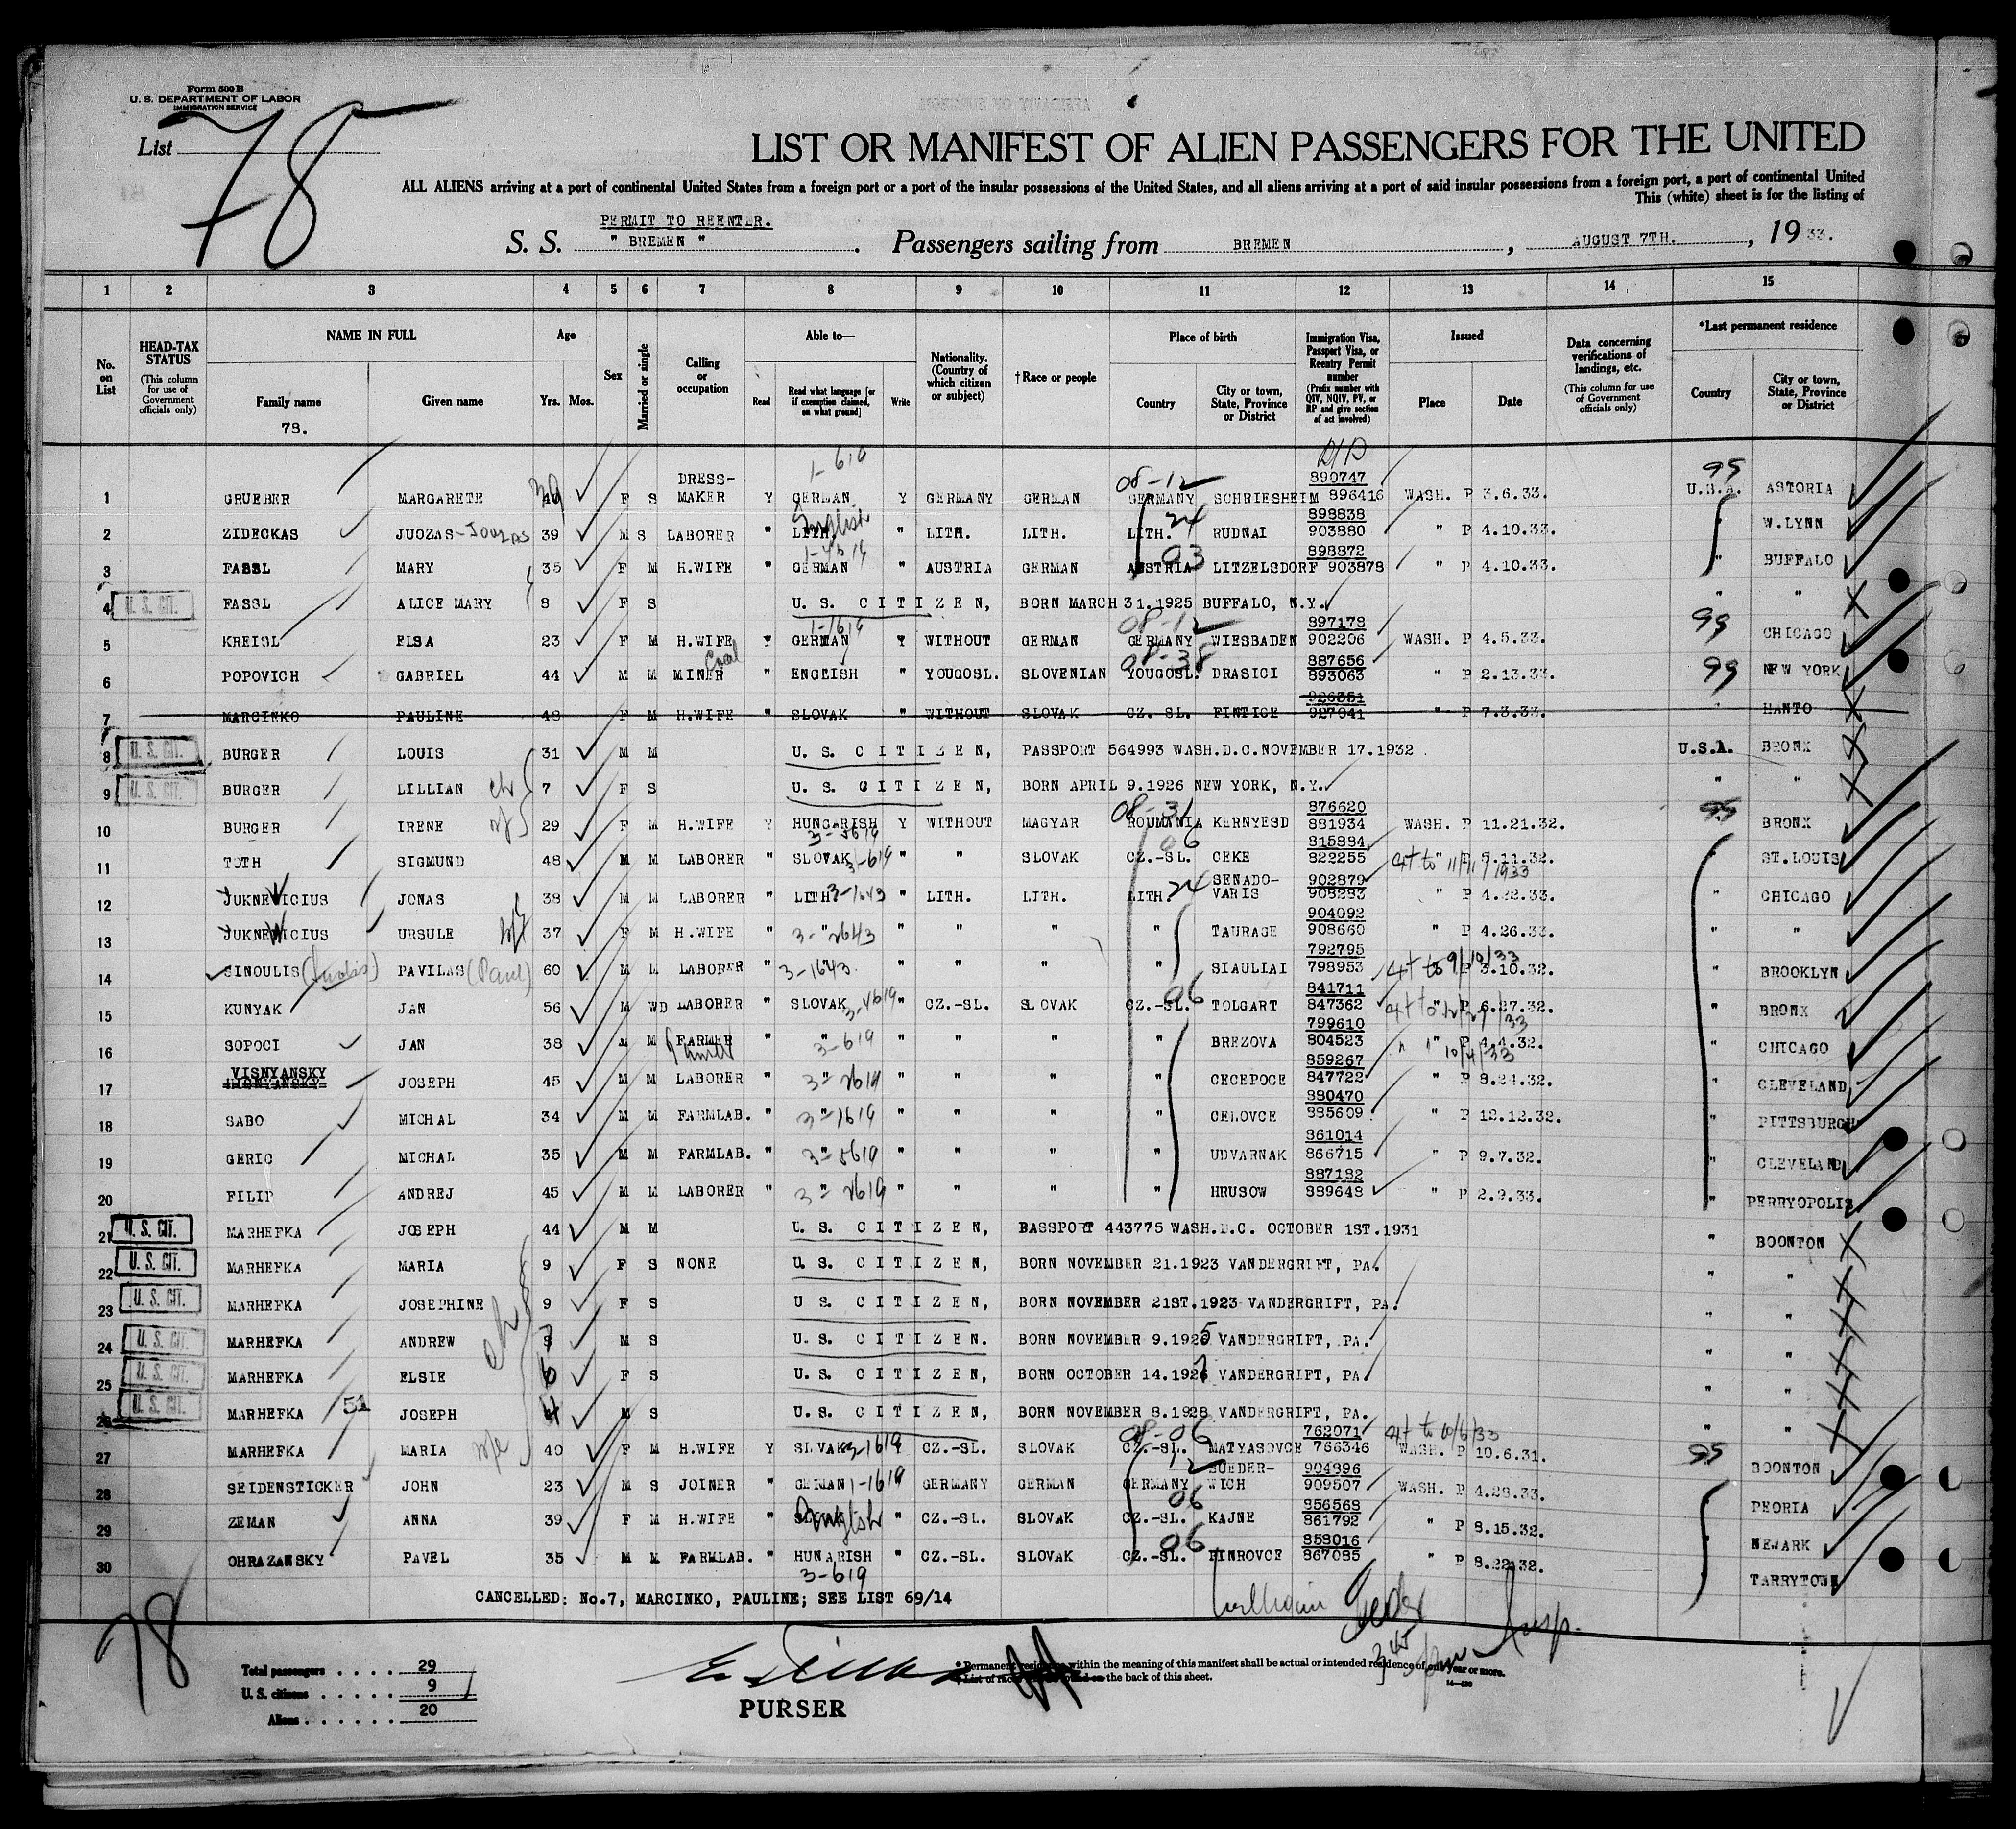 Form 500 B
U. S. DEPARTMENT OF LABOR
IMMIGRATION SERVICE
List 78
LIST OR MANIFEST OF ALIEN PASSENGERS FOR THE UNITED
ALL ALIENS arriving at a port of continental United States from a foreign port or a port of the insular possessions of the United States, and all aliens arriving at a port of said insular possessions from a foreign port, a port of continental United
This (white) sheet is for the listing of
PERMIT TO REENTER.
S. S. " BREMEN " . Passengers sailing from BREMEN , AUGUST 7TH. , 19 33.
1 2 3 4 5 6 7 8 9 10 11 12 13 14 15
No. on List
HEAD-TAX STATUS (This column for use of Government officials only)
NAME IN FULL Family name Given name
78.
Age Yrs. Mos.
Sex
Married or single
Calling or occupation
Able to— Read Read what language [or if exemption claimed, on what ground] Write
Nationality. (Country of which citizen or subject)
†Race or people
Place of birth Country City or town, State, Province or District
Immigration Visa, Passport Visa, or Reentry Permit number (Prefix number with QIV, NQIV, PV, or RP and give section of act involved)
Issued Place Date
Data concerning verifications of landings, etc. (This column for use of Government officials only)
*Last permanent residence Country City or town, State, Province or District
1 GRUEBER MARGARETE 39 F S DRESS-MAKER Y GERMAN 1-619 Y GERMANY GERMAN 08-12 GERMANY SCHRIESHEIM 890747 896416 WASH. P 3.6.33. 99 U.S.A. ASTORIA
2 ZIDECKAS JUOZAS-Jouzas 39 M S LABORER " LITH. English " LITH. LITH. LITH. 24 RUDNAI 898838 903880 " P 4.10.33. " W.LYNN
3 FASSL MARY 35 F M H.WIFE " GERMAN " AUSTRIA GERMAN 03 AUSTRIA LITZELSDORF 898872 903878 " P 4.10.33. " BUFFALO
4 U. S. CIT. FASSL ALICE MARY 8 F S U. S. CITIZEN, BORN MARCH 31.1925 BUFFALO, N.Y. " "
5 KREISL ELSA 23 F M H.WIFE Y GERMAN 1-1619 Y WITHOUT GERMAN 08-12 GERMANY WIESBADEN 897178 902206 WASH. P 4.5.33. 99 CHICAGO
6 POPOVICH GABRIEL 44 M M Coal MINER " ENGLISH " YOUGOSL. SLOVENIAN 08-38 YOUGOSL. DRASICI 887656 893063 " P 2.13.33. 99 NEW YORK
7 MARCINKO PAULINE 48 F M H.WIFE " SLOVAK " WITHOUT SLOVAK CZ.-SL. FINTICE 926351 927041 " P 7.3.33. " HANTO
8 U. S. CIT. BURGER LOUIS 31 M M U. S. CITIZEN, PASSPORT 564993 WASH.D.C.NOVEMBER 17.1932 U.S.A. BRONX
9 U. S. CIT. BURGER LILLIAN ch 7 F S U. S. CITIZEN, BORN APRIL 9.1926 NEW YORK, N.Y. " "
10 BURGER IRENE wf 29 F M H.WIFE Y HUNGARISH Y WITHOUT MAGYAR 08-31 ROUMANIA KERNYESD 876620 881934 WASH. P 11.21.32. 99 BRONX
11 TOTH SIGMUND 48 M M LABORER " SLOVAK 3-619 " " SLOVAK 06 CZ.-SL. CEKE 815884 822255 " P 5.11.32. 11/11/1933 " ST.LOUIS
12 JUKNEVICIUS JONAS 38 M M LABORER " LITH. 3-1643 " LITH. LITH. LITH. 24 SENADO-VARIS 902879 908283 " P 4.22.33. " CHICAGO
13 JUKNEVICIUS URSULE wf 37 F M H.WIFE " 3-"2643 " " " " TAURAGE 904092 908660 " P 4.26.33. " "
14 SINOULIS PAVILAS (Paul) 60 M M LABORER " 3-1643 " " " " SIAULIAI 792795 798953 9/10/33 P 3.10.32. " BROOKLYN
15 KUNYAK JAN 56 M WD LABORER " SLOVAK " CZ.-SL. SLOVAK CZ.-SL. 06 TOLGART 841711 847362 " P 6.27.32. " BRONX
16 SOPOCI JAN 38 M M FARMER " " 3-619 " " " " BREZOVA 799610 804523 " P 4.4.32. 10/4/33 " CHICAGO
17 VISNYANSKY JOSEPH 45 M M LABORER " 3-"2619 " " " " CECEPOCE 859267 847722 " P 8.24.32. " CLEVELAND
18 SABO MICHAL 34 M M FARMLAB. " 3-"1619 " " " " CELOVCE 880470 885609 " P 12.12.32. " PITTSBURGH
19 GERIC MICHAL 35 M M FARMLAB. " " " " " " UDVARNAK 861014 866715 " P 9.7.32. " CLEVELAND
20 FILIP ANDREJ 45 M M LABORER " 3-"2619 " " " " HRUSOW 887182 889648 " P 2.9.33. " PERRYOPOLIS
21 U. S. CIT. MARHEFKA JOSEPH 44 M M U. S. CITIZEN, BASSPORT 443775 WASH.D.C. OCTOBER 1ST.1931 " BOONTON
22 U. S. CIT. MARHEFKA MARIA 9 F S NONE U. S. CITIZEN, BORN NOVEMBER 21.1923 VANDERGRIFT, PA. " "
23 U. S. CIT. MARHEFKA JOSEPHINE 9 F S U S. CITIZEN, BORN NOVEMBER 21ST.1923 VANDERGRIFT, PA. " "
24 U. S. CIT. MARHEFKA ANDREW 7 M S U. S. CITIZEN. BORN NOVEMBER 9.1925 VANDERGRIFT, PA. " "
25 U. S. CIT. MARHEFKA ELSIE 6 F S U. S. CITIZEN, BORN OCTOBER 14.1927 VANDERGRIFT, PA. " "
26 U. S. CIT. MARHEFKA 51 JOSEPH 4 M S U. S. CITIZEN, BORN NOVEMBER 8.1928 VANDERGRIFT, PA. " "
27 MARHEFKA MARIA 40 F M H.WIFE Y SLVAK 3-1619 CZ.-SL. SLOVAK 08-06 CZ.-SL. MATYASOVCE 762071 766346 WASH. P 10.6.31. 10/6/33 99 BOONTON
28 SEIDENSTICKER JOHN 23 M S JOINER " GERMAN 1-1619 GERMANY GERMAN 12 GERMANY SUEDER-WICH 904896 909507 WASH. P 4.28.33. " PEORIA
29 ZEMAN ANNA 39 F M H.WIFE " English " CZ.-SL. SLOVAK 06 CZ.-SL. KAJNE 856568 861792 " P 8.15.32. " NEWARK
30 OHRAZANSKY PAVEL 35 M M FARMLAB. " HUNARISH 3-619 CZ.-SL. SLOVAK 06 CZ.-SL. FINROVCE 858016 867085 " P 8.22.32. TARRYTOWN
CANCELLED: No.7, MARCINKO, PAULINE; SEE LIST 69/14
78
Total passengers . . . . 29
U. S. citizens . . . . . 9
Aliens . . . . . . 20
PURSER
* Permanent residence within the meaning of this manifest shall be actual or intended residence of one year or more.
† List of races on the back of this sheet.
Insp.